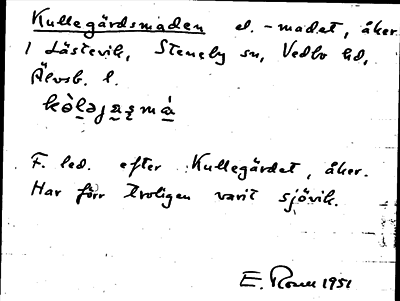 Kullegärdsmaden el. -madet, åker
i Lästevik, Steneby sn, Vedbo hd,
Älvsb. l.
F. led. efter Kullegärdet, åker.
Har förr troligen varit sjövik.
E. 1951